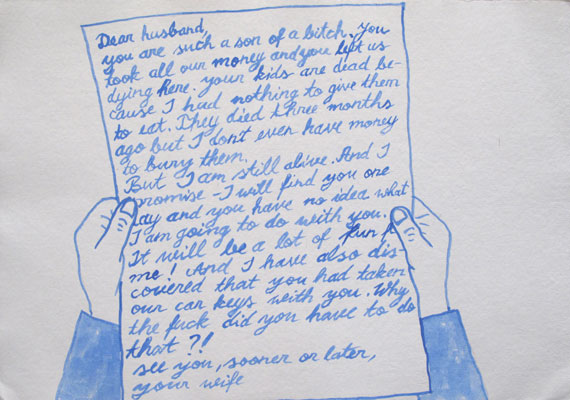 Dear husband,
you are such a son of a bitch. You
took all our money and you left us
dying here. your kids are dead be-
cause I had nothing to give them
to eat. They died three months
ago but I don't even have money
to bury them.
But I am still alive. And I
promise - I will find you one
day and you have no idea what
I am going to do with you.
It will be a lot of fun
me! And I have also dis-
covered that you had taken
our car keys with you. Why
the fuck did you have to do
that?!
see you, sooner or later,
your wife